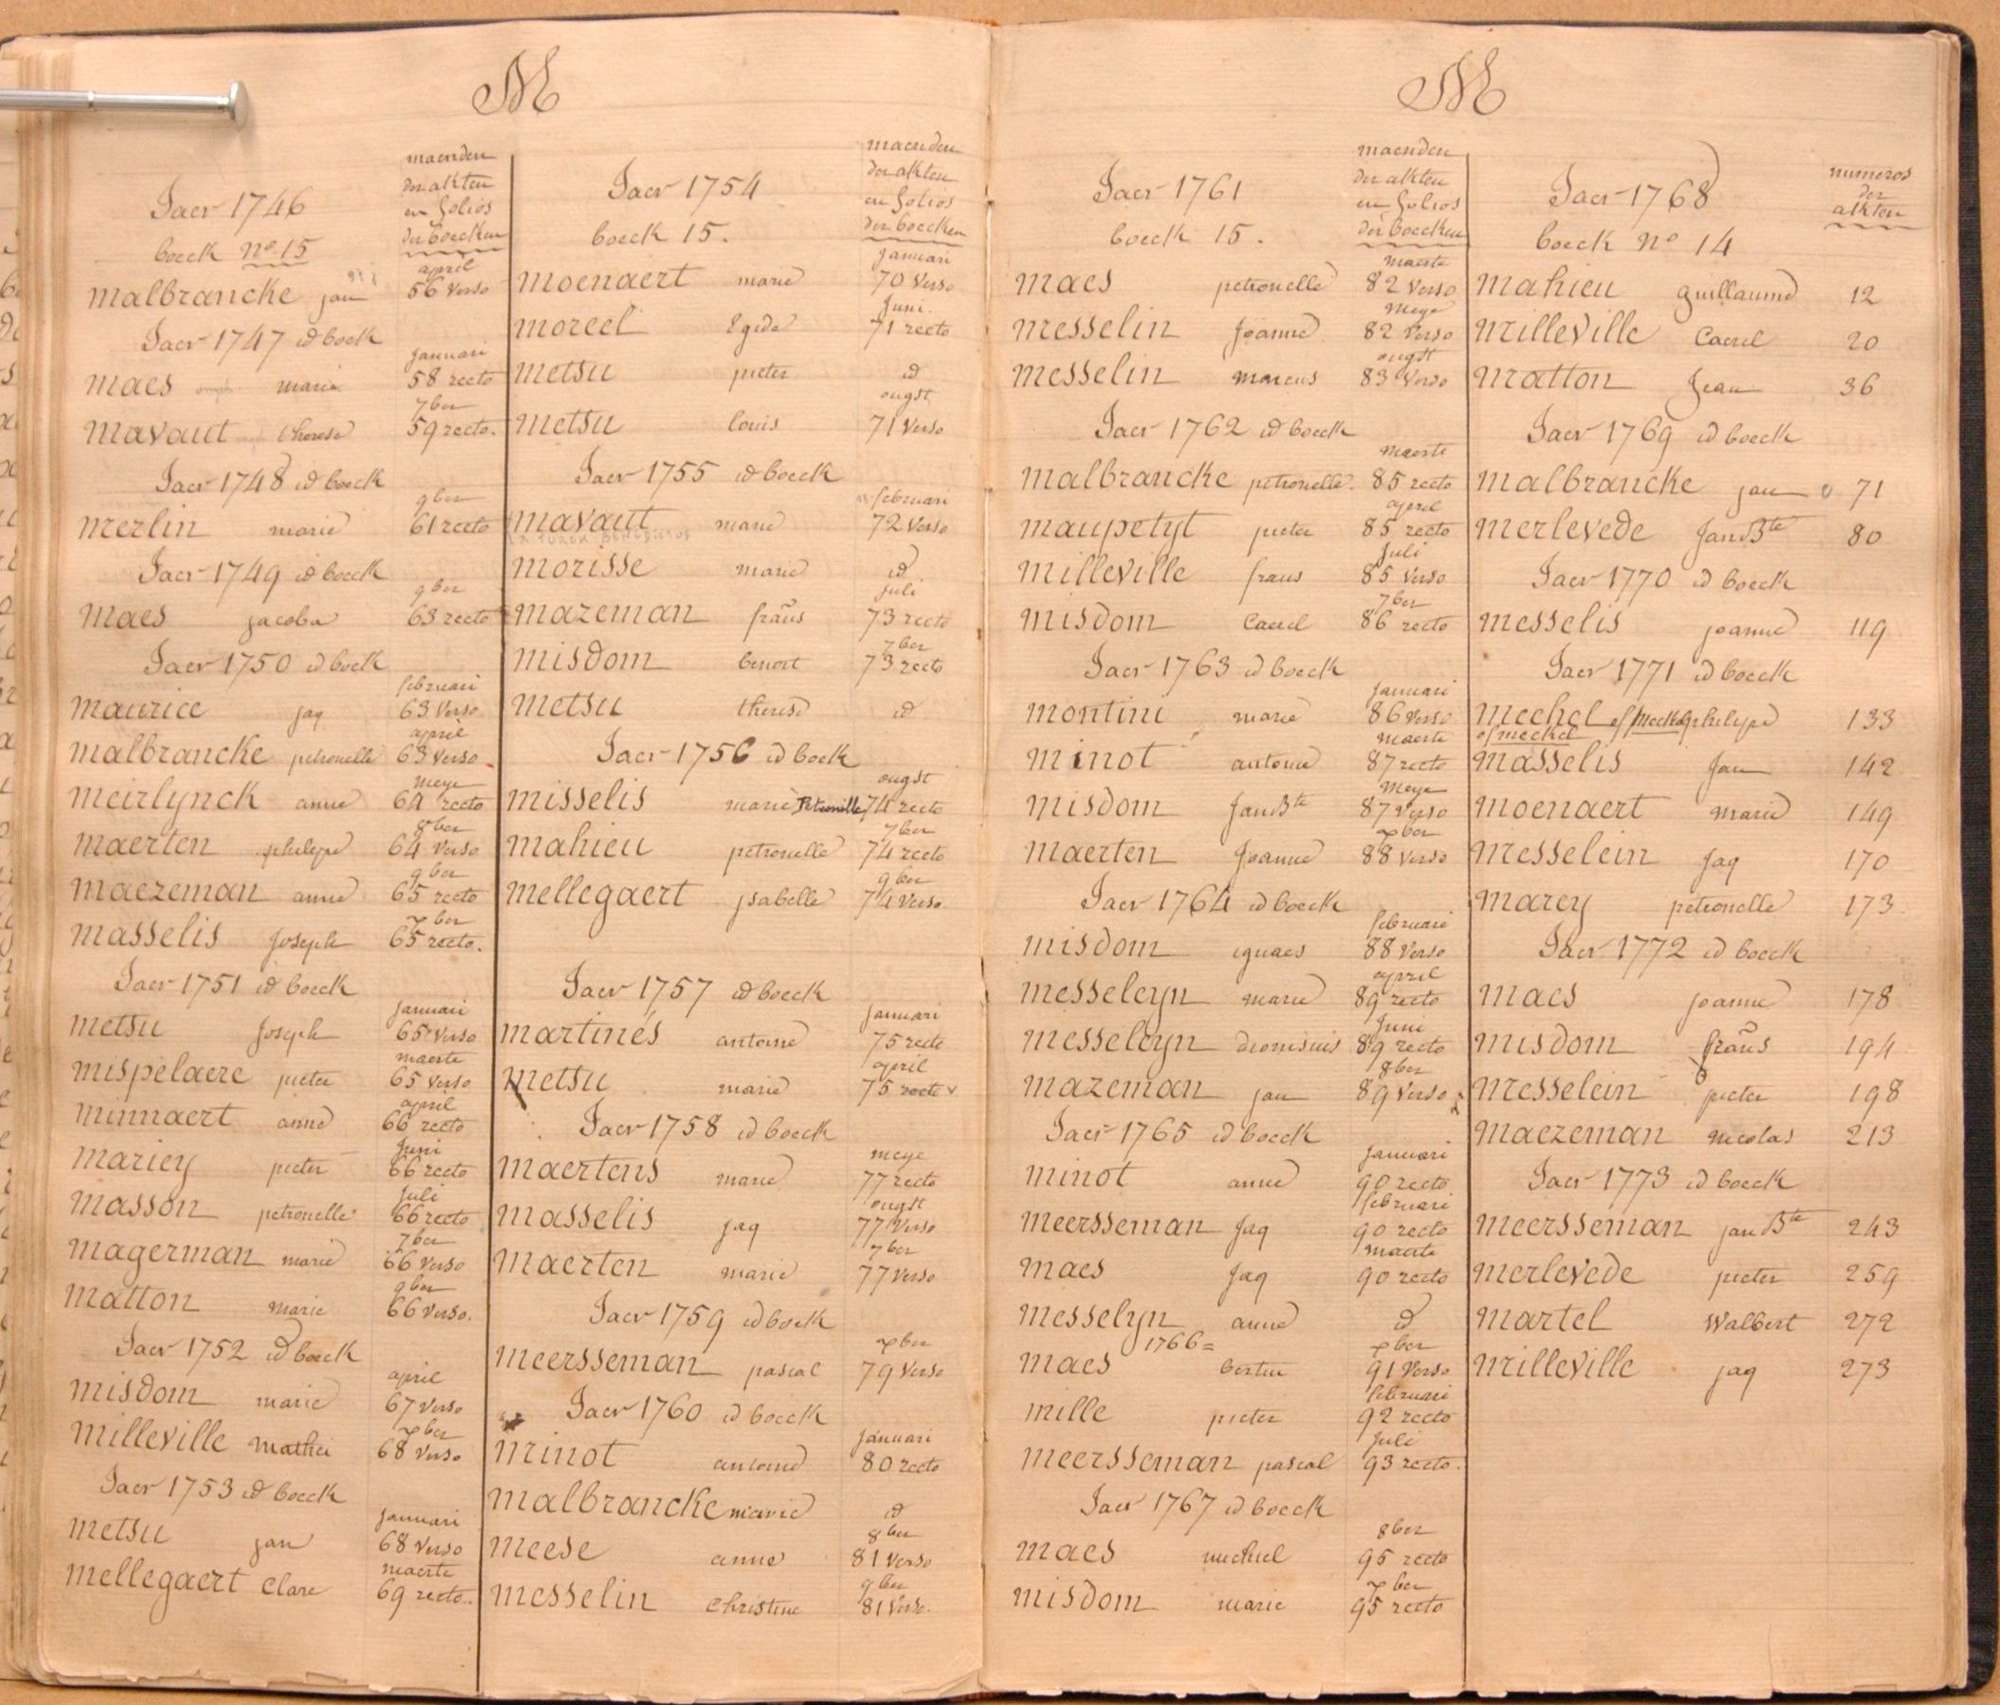 M
maenden
der akten
en folios
der boecken
Jaer 1746
boeck No 15
april
malbrancke jan 56 verso
Jaer 1747 id boek
januari
maes maria 58 recto
7ber
mavaut therese 59 recto.
Jaer 1748 id boeck
9ber
merlin marie 61 recto
Jaer 1749 id boeck
9ber
maes jacoba 63 recto
Jaer 1750 id boek
februari
maurice jaq 63 verso
april
malbrancke petronelle 63 verso
meye
meirlynck anne 64 recto
8ber
maerten philype 64 verso
9ber
maezeman anne 65 recto
xber
masselis Joseph 65 recto.
Jaer 1751 id boeck
januari
metsu Joseph 65 verso
maerte
mispelaere pieter 65 verso
april
minnaert anne 66 recto
Juni
mariey pieter 66 recto
juli
masson petronelle 66 recto
7ber
magerman marie 66 verso
9ber
matton marie 66 verso.
Jaer 1752 id boeck
april
misdom marie 67 verso
xber
milleville mathei 68 verso
Jaer 1753 id boeck
januari
metsu jan 68 verso
maerte
mellegaert Clare 69 recto.
maenden
der akten
en folios
der boecken
Jaer 1754
boeck 15.
januari
moenaert marie 70 verso
Juni.
moreel Egide 71 recto
metsu pieter id
ougst
metsu louis 71 verso
Jaer 1755 id boeck
februari
mavaut marie 72 verso
morisse marie id
juli
mazeman frans 73 recto
7ber
misdom benoit 73 recto
metsu therese id
Jaer 1756 id boek
ougst
misselis marie Petronille 74 recto
7ber
mahieu petronelle 74 recto
9ber
mellegaert ysabelle 74 verso
Jaer 1757 id boeck
januari
martinés antoine 75 recto
april
metsu marie 75 recto v
Jaer 1758 id boeck
meye
maertens marie 77 recto
ougst
masselis jaq 77 verso
7ber
maerten marie 77 verso
Jaer 1759 id boek
xber
meersseman pascal 79 verso
Jaer 1760 id boeck
januari
minot antoine 80 recto
malbrancke marie id
8ber
meese anne 81 verso
9ber
messelin Christine 81 verso.
M
maenden
der akten
en folios
der boecken
Jaer 1761
boeck 15.
maerte
maes petronelle 82 verso
meye
messelin Joanne 82 verso
ougst
messelin marcus 83 verso
Jaer 1762 id boeck
maerte
malbrancke petronelle. 85 recto
april
maupetyt pieter 85 recto
Juli
milleville frans 85 verso
7ber
misdom Carel 86 recto
Jaer 1763 id boeck
januari
montini marie 86 verso
maerte
minot antoine 87 recto
meye
misdom Jan Bte 87 verso
xber
maerten Joanne 88 verso
Jaer 1764 id boeck
februari
misdom ignaes 88 verso
april
messeleyn marie 89 recto
Juni
messeleyn dionisius 89 recto
8ber
mazeman jan 89 verso
Jaer 1765 id boeck
januari
minot anne 90 recto
februari
meersseman Jaq 90 recto
maerte
maes Jaq 90 recto
messelyn anne id
1766 = xber
maes bertin 91 verso
februari
mille pieter 92 recto
Juli
meersseman pascal 93 recto.
Jaer 1767 id boeck
8ber
maes michiel 95 recto
xber
misdom marie 95 recto
numeros
der
akten
Jaer 1768
boeck No 14
mahieu guillaume 12
milleville Carel 20
matton Jean 36
Jaer 1769 id boeck
malbrancke jan 71
merlevede Jan Bte 80
Jaer 1770 id boeck
messelis joanne 119
Jaer 1771 id boeck
mechel philype 133
of meckel
masselis Jan 142
moenaert marie 149
messelein Jaq 170
marey petronelle 173
Jaer 1772 id boeck
maes joanne 178
misdom frans 194
messelein pieter 198
maezeman nicolas 213
Jaer 1773 id boeck
meersseman jan Bte 243
merlevede pieter 259
martel Walbert 272
milleville jaq 273